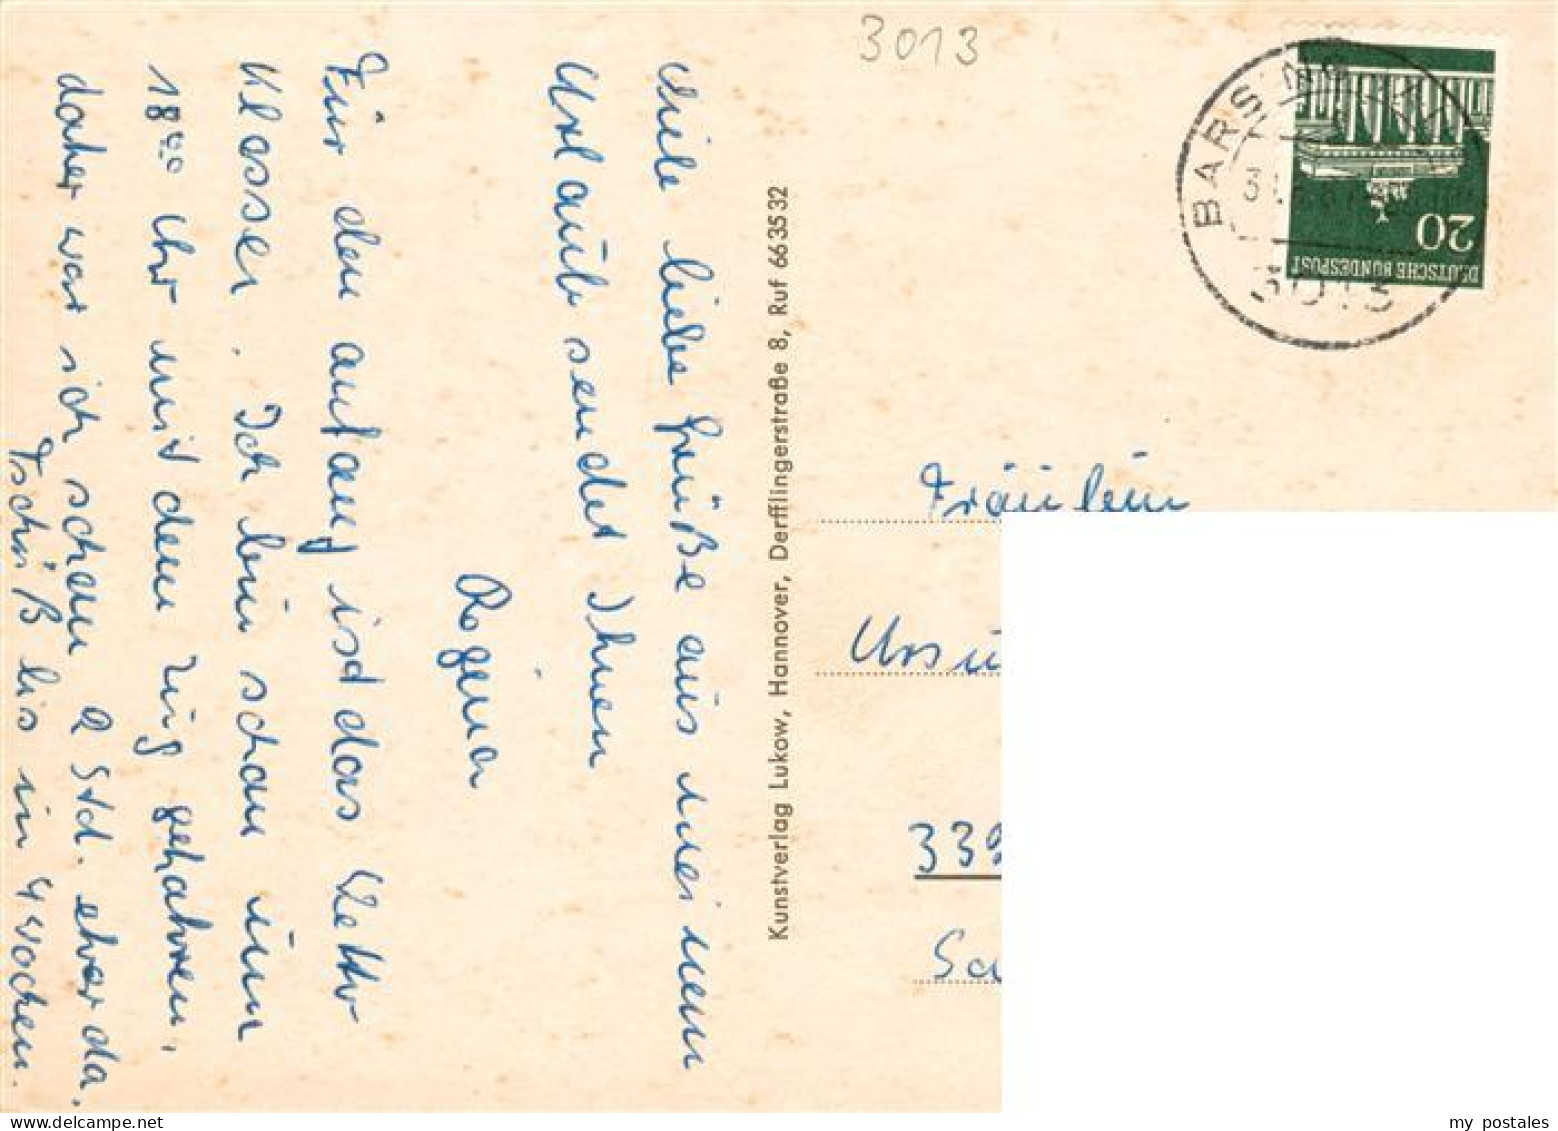 3013
BARSINGHAUSEN
3013
20
DEUTSCHE BUNDESPOST
Viele liebe Grüße aus meinem
Urlaub sendet Ihnen
Regina
Für den anfang ist das Wetter
Klasser. Ich bin schon um
18⁰⁰ Uhr mit dem Zug gefahren,
daher war ich schon 2 Std. eher da.
Tschüß bis in 4 Wochen.
Kunstverlag Lukow, Hannover, Derfflingerstraße 8, Ruf 663532
Fräulein
Ursu
339
Sa
my postales